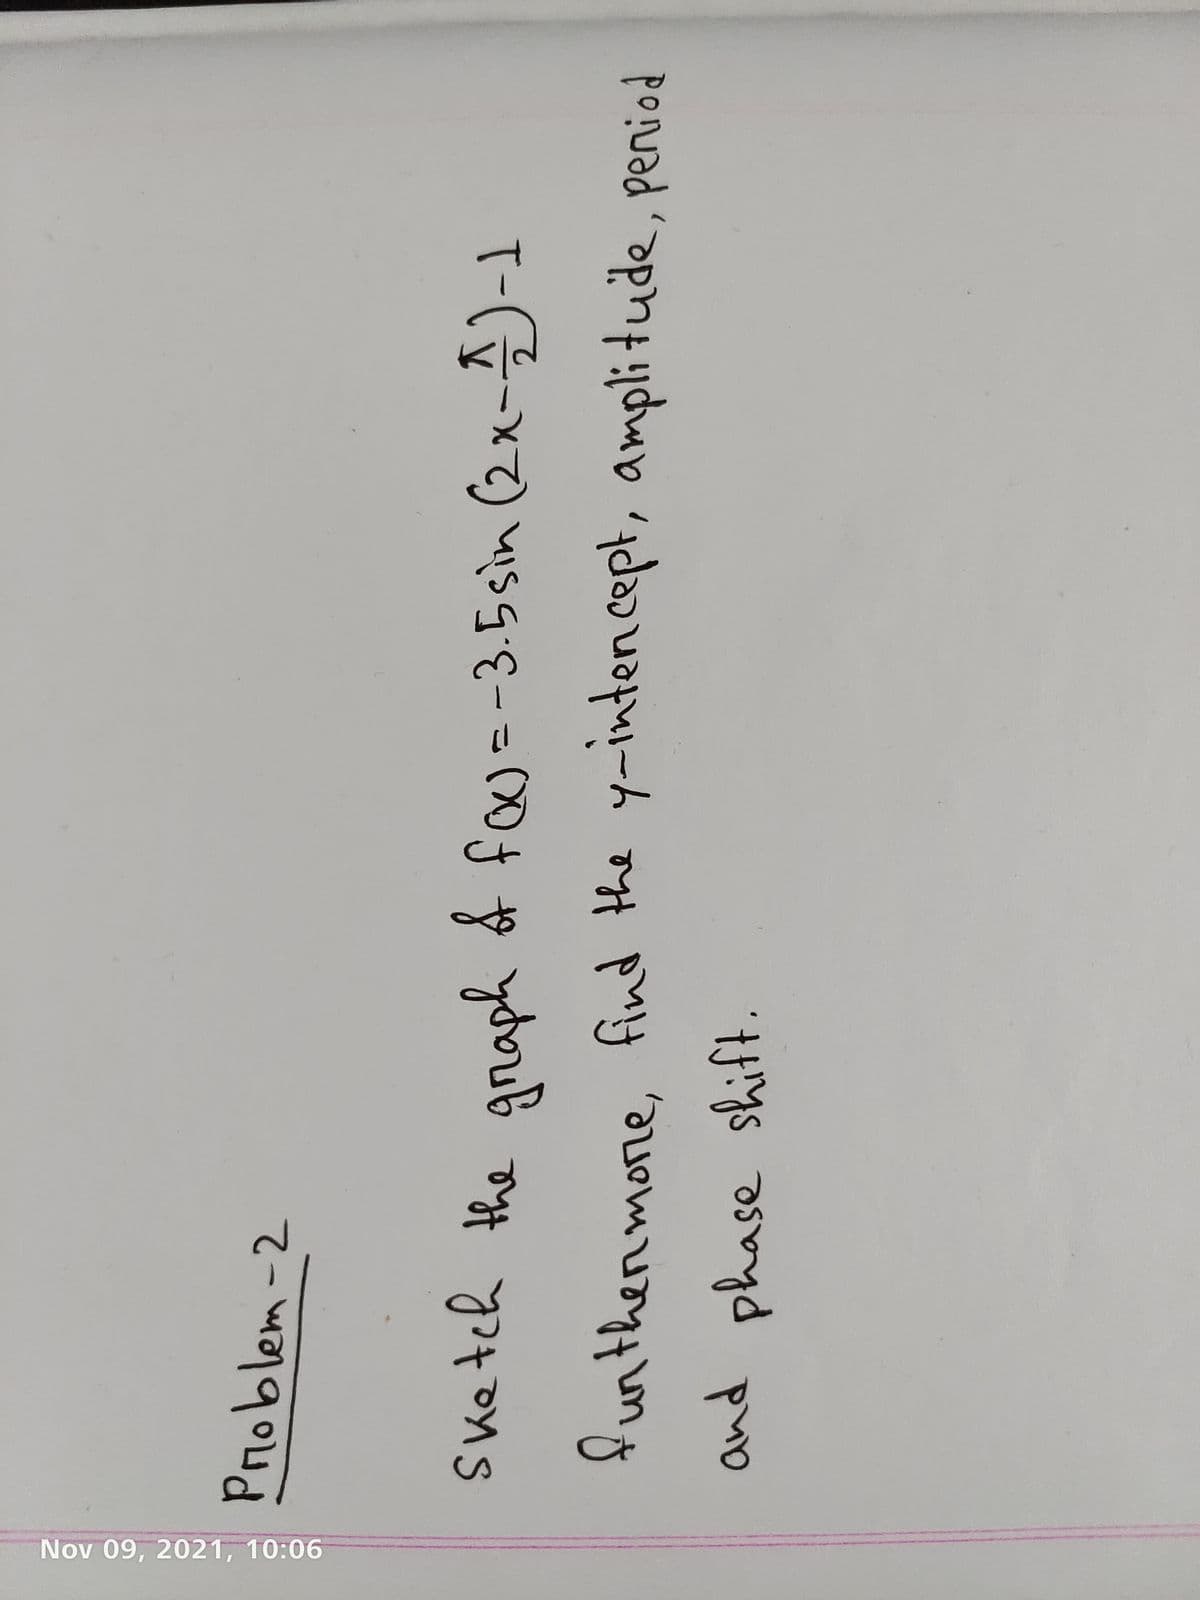 Problem-2
Sketch the graph of f(x)=-3.5sin(2x-π/2)-1
Furthermore, find the y-intercept, amplitude, period
and phase shift.
Nov 09, 2021, 10:06